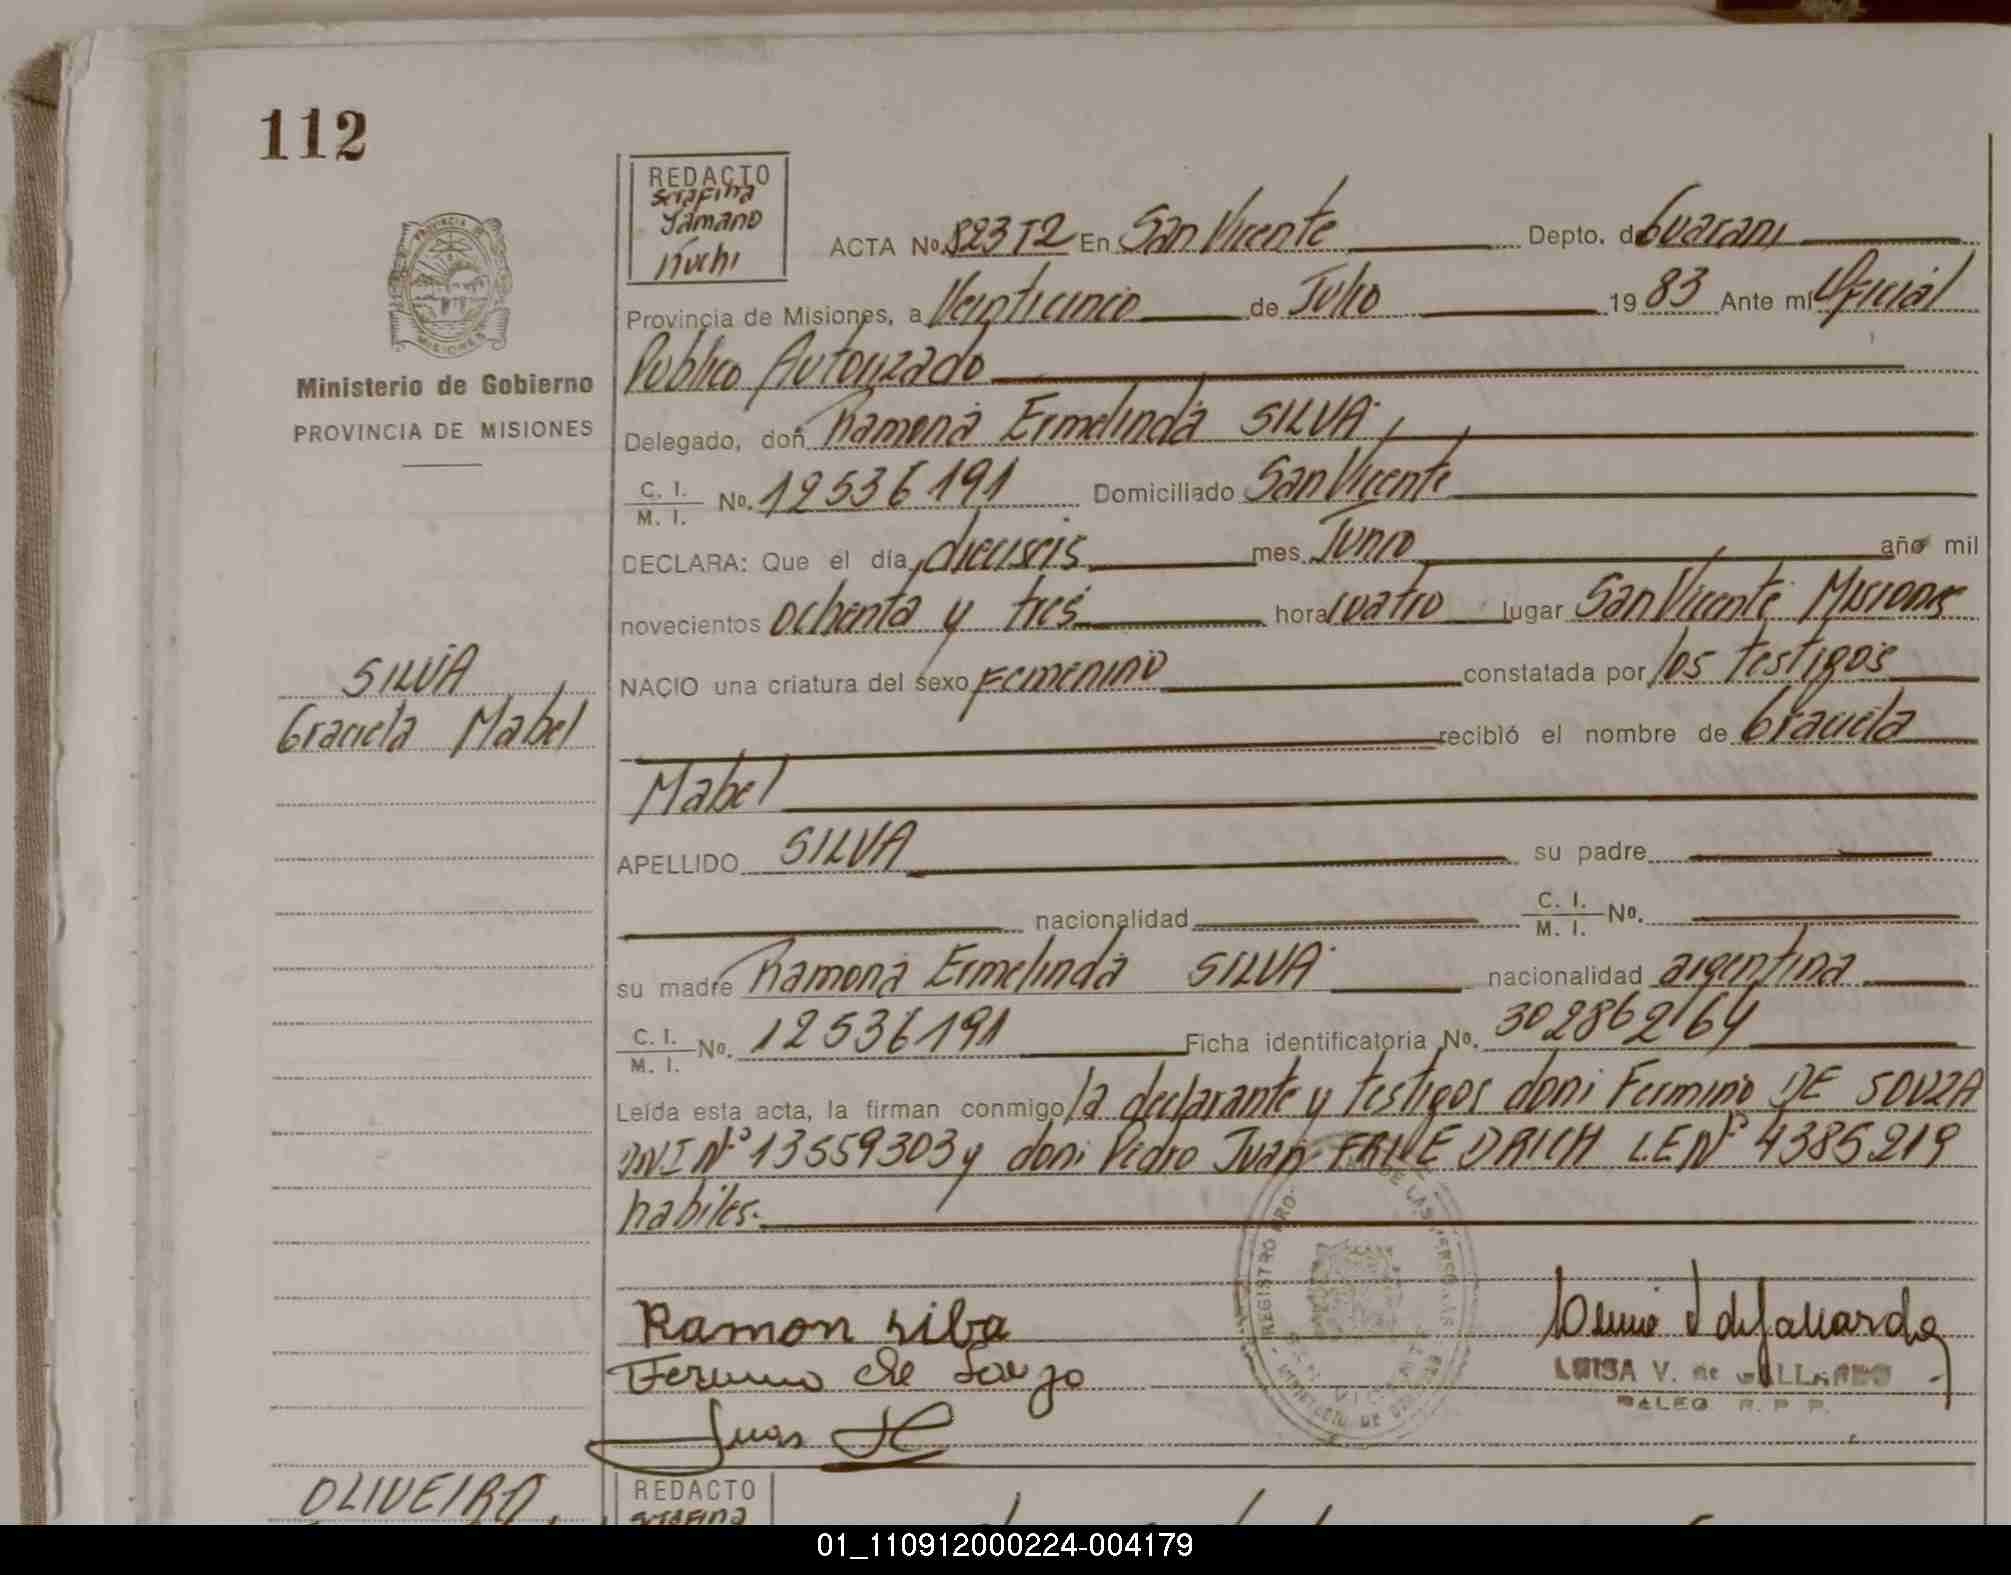 112
REDACTO
Serafina
Tamano
Kuchi
ACTA No. 823 T2 En San Vicente Depto. de Guarani
Provincia de Misiones, a Veinticinco de Julio 19 83 Ante mi Oficial
Publico Autorizado
Ministerio de Gobierno
PROVINCIA DE MISIONES
Delegado, doñ Ramona Ermelinda SILVA
C. I.
M. I. No. 12536191 Domiciliado San Vicente
DECLARA: Que el día dieciseis mes Junio año mil
novecientos ochenta y tres hora cuatro lugar San Vicente Misiones
SILVA
Graciela Mabel
NACIO una criatura del sexo Femenino constatada por los testigos
recibió el nombre de Graciela
Mabel
APELLIDO SILVA su padre
nacionalidad C. I.
M. I. No.
su madre Ramona Ermelinda SILVA nacionalidad argentina
C. I.
M. I. No. 12536191 Ficha identificatoria No. 302862164
Leída esta acta, la firman conmigo la declarante y testigos doni Fermino DE SOUZA
DNI Nº 13559303 y doni Pedro Juan LE Nº 4385219
habiles.
Ramon silba
Fermino de Souza
Juan
LUISA V. de GALLARDO
R. P. P.
OLIVEIRA
REDACTO
Serafina
01_110912000224-004179